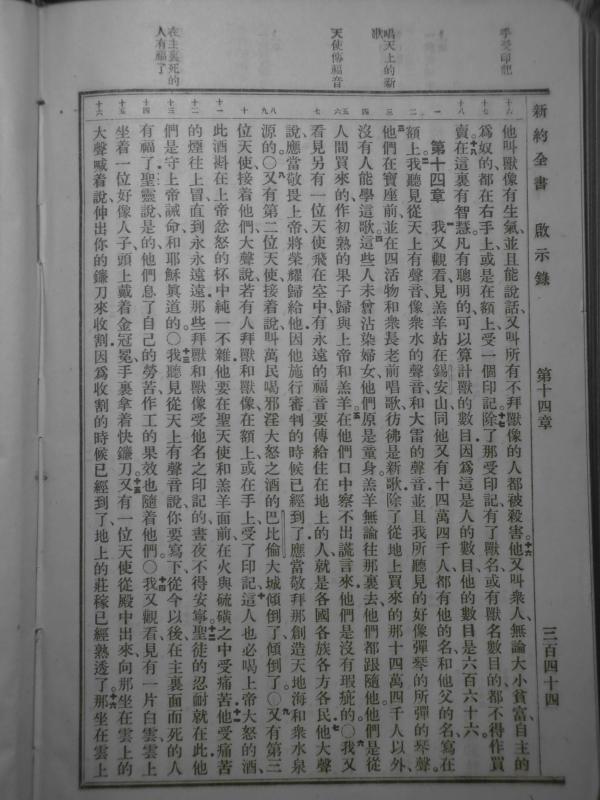 新約全書 啟示錄 第十四章 三百四十四
手受印記
唱天上的新歌
天使傳福音
在主裏死的人有福了
十六 他叫獸像有生氣並且能說話又叫所有不拜獸像的人都被殺害他又叫衆人無論大小貧富自主的
十七 爲奴的都在右手上或是在額上受一個印記除了那受印記有了獸名或有獸名數目的都不得作買
十八 賣在這裏有智慧凡有聰明的可以算計獸的數目因爲這是人的數目他的數目是六百六十六
一 第十四章 我又觀看見羔羊站在錫安山同他又有十四萬四千人都有他的名和他父的名寫在
二 額上我聽見從天上有聲音像衆水的聲音和大雷的聲音並且我所聽見的好像彈琴的所彈的琴聲
三 他們在寶座前並在四活物和衆長老前唱歌彷彿是新歌除了從地上買來的那十四萬四千人以外
四 沒有人能學這歌這些人未曾沾染婦女他們原是童身羔羊無論往那裏去他們都跟隨他他們是從
五 六 人間買來的作初熟的果子歸與上帝和羔羊在他們口中察不出謊言來他們是沒有瑕疵的〇我又
七 看見另有一位天使飛在空中有永遠的福音要傳給住在地上的人就是各國各族各方各民他大聲
說應當敬畏上帝將榮耀歸給他因他施行審判的時候已經到了應當敬拜那創造天地海和衆水泉
八 九 源的〇又有第二位天使接着說叫萬民喝邪淫大怒之酒的巴比倫大城傾倒了傾倒了〇又有第三
十 位天使接着他們大聲說若有人拜獸和獸像在額上或在手上受了印記這人也必喝上帝大怒的酒
十一 此酒斟在上帝忿怒的杯中純一不雜他要在聖天使和羔羊面前在火與硫磺之中受痛苦他受痛苦
十二 的煙往上冒直到永永遠遠那些拜獸和獸像受他名之印記的晝夜不得安寧聖徒的忍耐就在此他
十三 們是守上帝誡命和耶穌眞道的〇我聽見從天上有聲音說你要寫下從今以後在主裏面而死的人
十四 有福了聖靈說是的他們息了自己的勞苦作工的果效也隨着他們〇我又觀看見有一片白雲雲上
十五 坐着一位好像人子頭上戴着金冠冕手裏拿着快鐮刀又有一位天使從殿中出來向那坐在雲上的
十六 大聲喊着說伸出你的鐮刀來收割因爲收割的時候已經到了地上的莊稼已經熟透了那坐在雲上